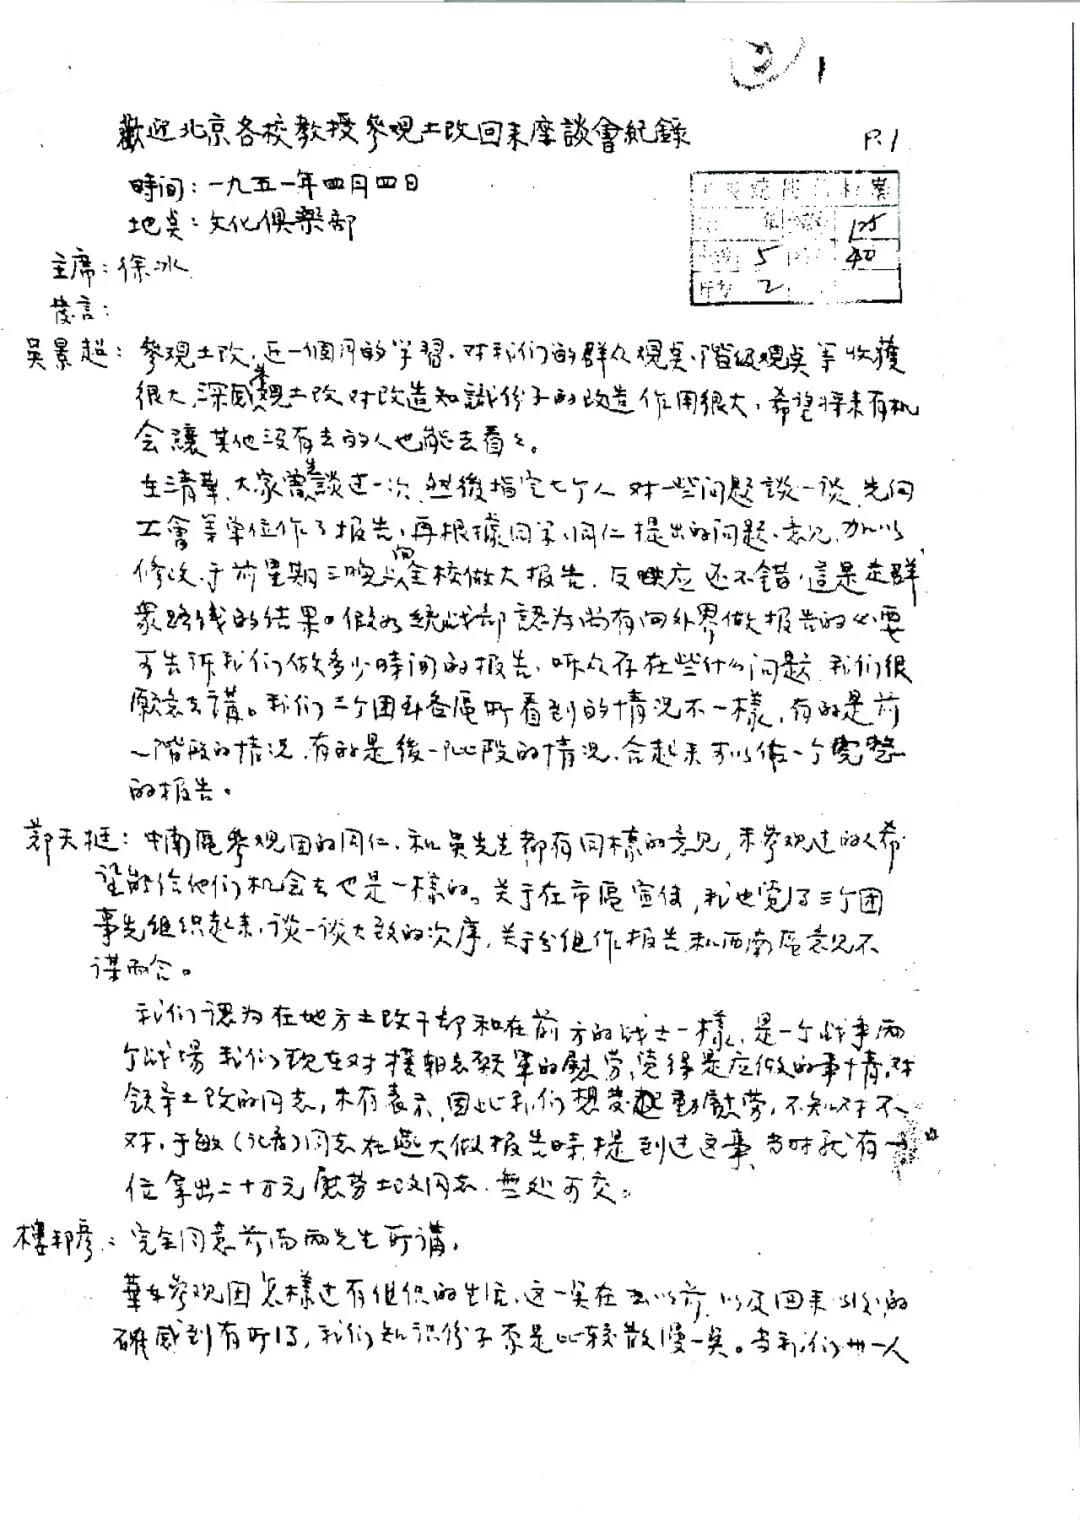 歡迎北京各校教授參观土改回来座談會紀錄
P.1
時间：一九五一年四月四日
地点：文化俱樂部
125
5
40
2
主席：徐冰
发言：
吴景超：參观土改，近一個月的学習，对我们的群众观点、階级观点等收獲
很大，深感参观土改对改造知識份子的改造作用很大，希望将来有机
会讓其他没有去的人也能去看々。
在清華，大家曾先談过一次，然後指定七个人对一些问題談一談，先向
工會等单位作了报告，再根據同学、同仁提出的问题、意见，加以
修改，于前星期三晚向全校做大报告，反映应还不错，這是走群
衆路线的结果。假如統战部認为尚有向外界做报告的必要
可告诉我们做多少時间的报告，听众存在些什么问题，我们很
願意去講。我们三个团到各區所看到的情况不一樣，有的是前
一階段的情况，有的是後一阶段的情况，合起来可以做一个完整
的报告。
郑天挺：中南區參观团的同仁，和吴先生都有同樣的意见，未參观过的人希
望能给他们机会去也是一樣的。关于在市區宣传，我也觉得三个团
事先组织起来，谈一谈大致的次序，关于分组作报告和西南區意见不
谋而合。
我们認为在地方土改干部和在前方的战士一樣，是一个战争两
个战場，我们现在对援朝志願軍的慰劳，觉得是应做的事情，对
领导土改的同志，未有表示，因此我们想发起動慰劳，不知对不
对，于敏（北大）同志在燕大做报告時提到过这事，当时就有一
位拿出二十万元慰劳土改同志，無处可交。
樓邦彦：完全同意前面两先生所講，
華东參观团怎樣过有组织的生活，这一点在去以前，以及回来以後的
確感到有所得，我们知识份子不是比较散漫一点。当我们卅一人